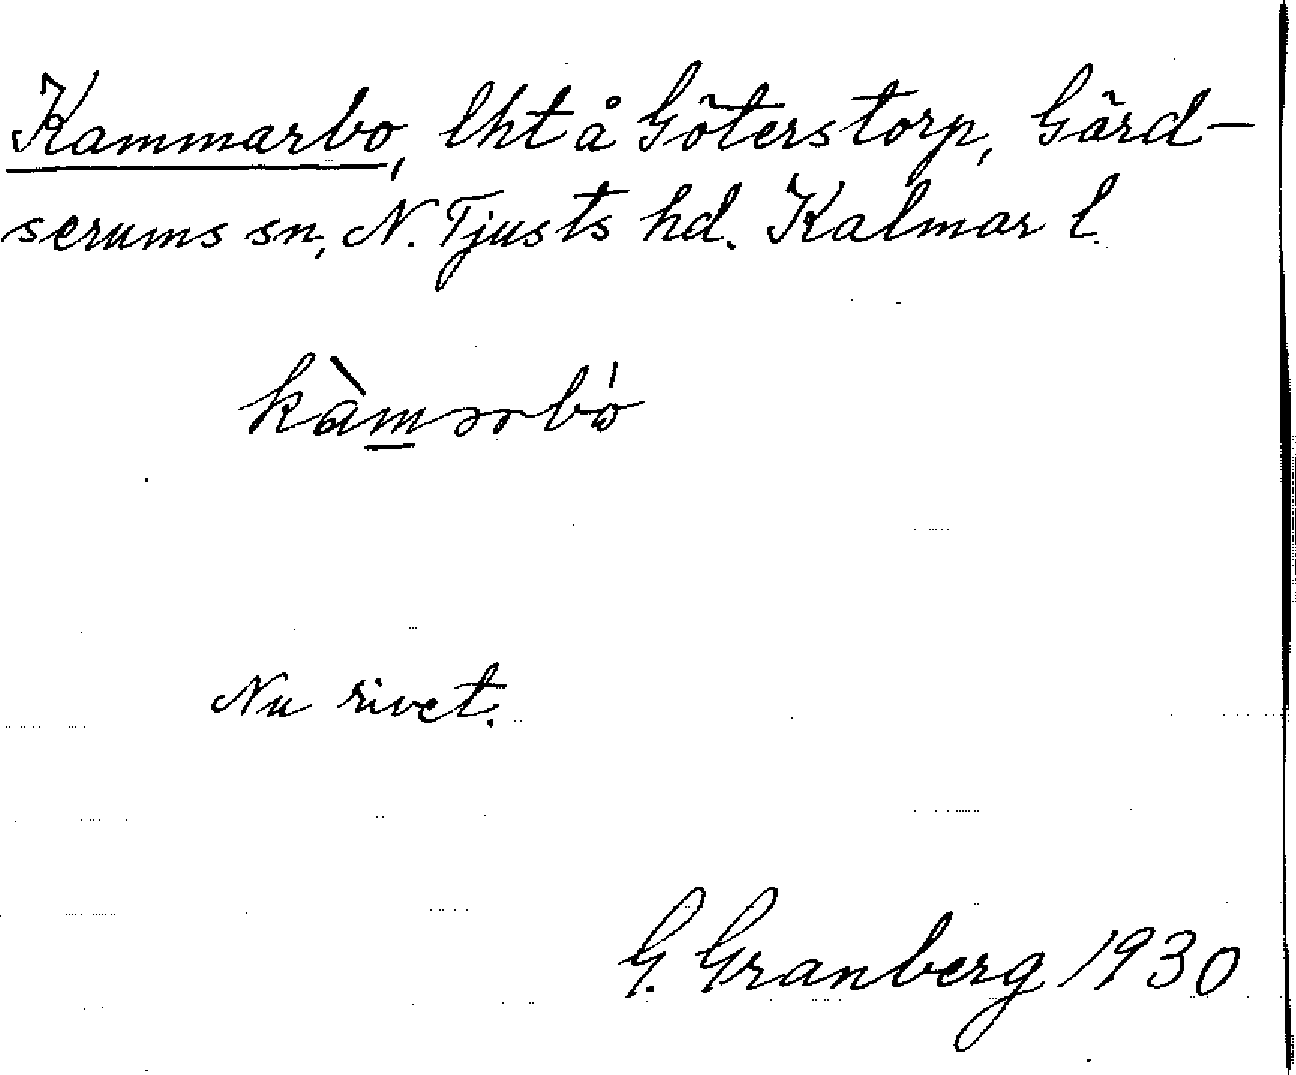 Kammarbo, lht å Göterstorp, Gärd-
serums sn, N. Tjusts hd. Kalmar l.
kàmərbó
Nu rivet.
G. Granberg 1930